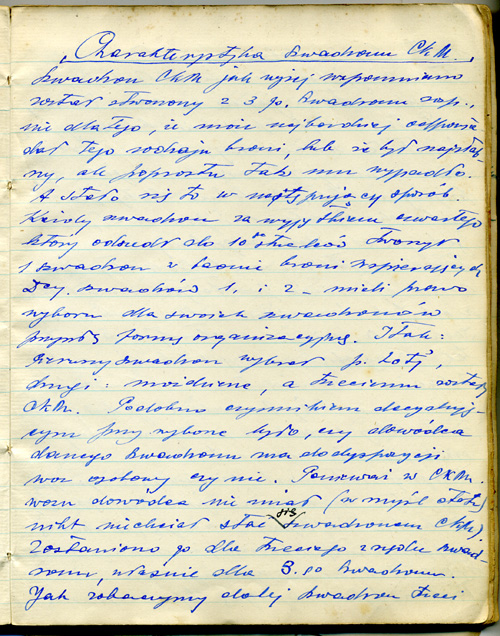 "Charakterystyka szwadronu CKM."
Szwadron CKM jak wyżej wspomniano
został stworzony z 3 go. szwadronu zap.,
nie dlatego, iż może najbardziej odpowia
dał tego rodzaju broni, lub że był najzdol
ny, ale poprostu tak mu wypadło.
A stało się to w następujący sposób.
Każdy szwadron za wyjątkiem czwartego
który odszedł do 10 strzelców tworzył
1 szwadron w broni wspierających
Dcy. szwadronów 1, i 2 - mieli prawo
wyboru dla swoich szwadronów
przyszłej formy organizacyjnej. I tak:
pierwszy szwadron wybrał p. lotż,
drugi: moździerze, a trzeciemu zostały
CKM. Podobno czynnikiem decydują-
cym przy wyborze było, czy dowódca
danego szwadronu ma do dyspozycji
wóz osobowy czy nie. Ponieważ w CKM.
wozu dowódca nie miał (w myśl etatu)
nikt nie chciał stać się szwadronem CKM).
Zostawiono go dla trzeciego z rzędu szwad-
ronu, właśnie dla 3. go szwadronu.
Jak zobaczymy dalej szwadron trzeci